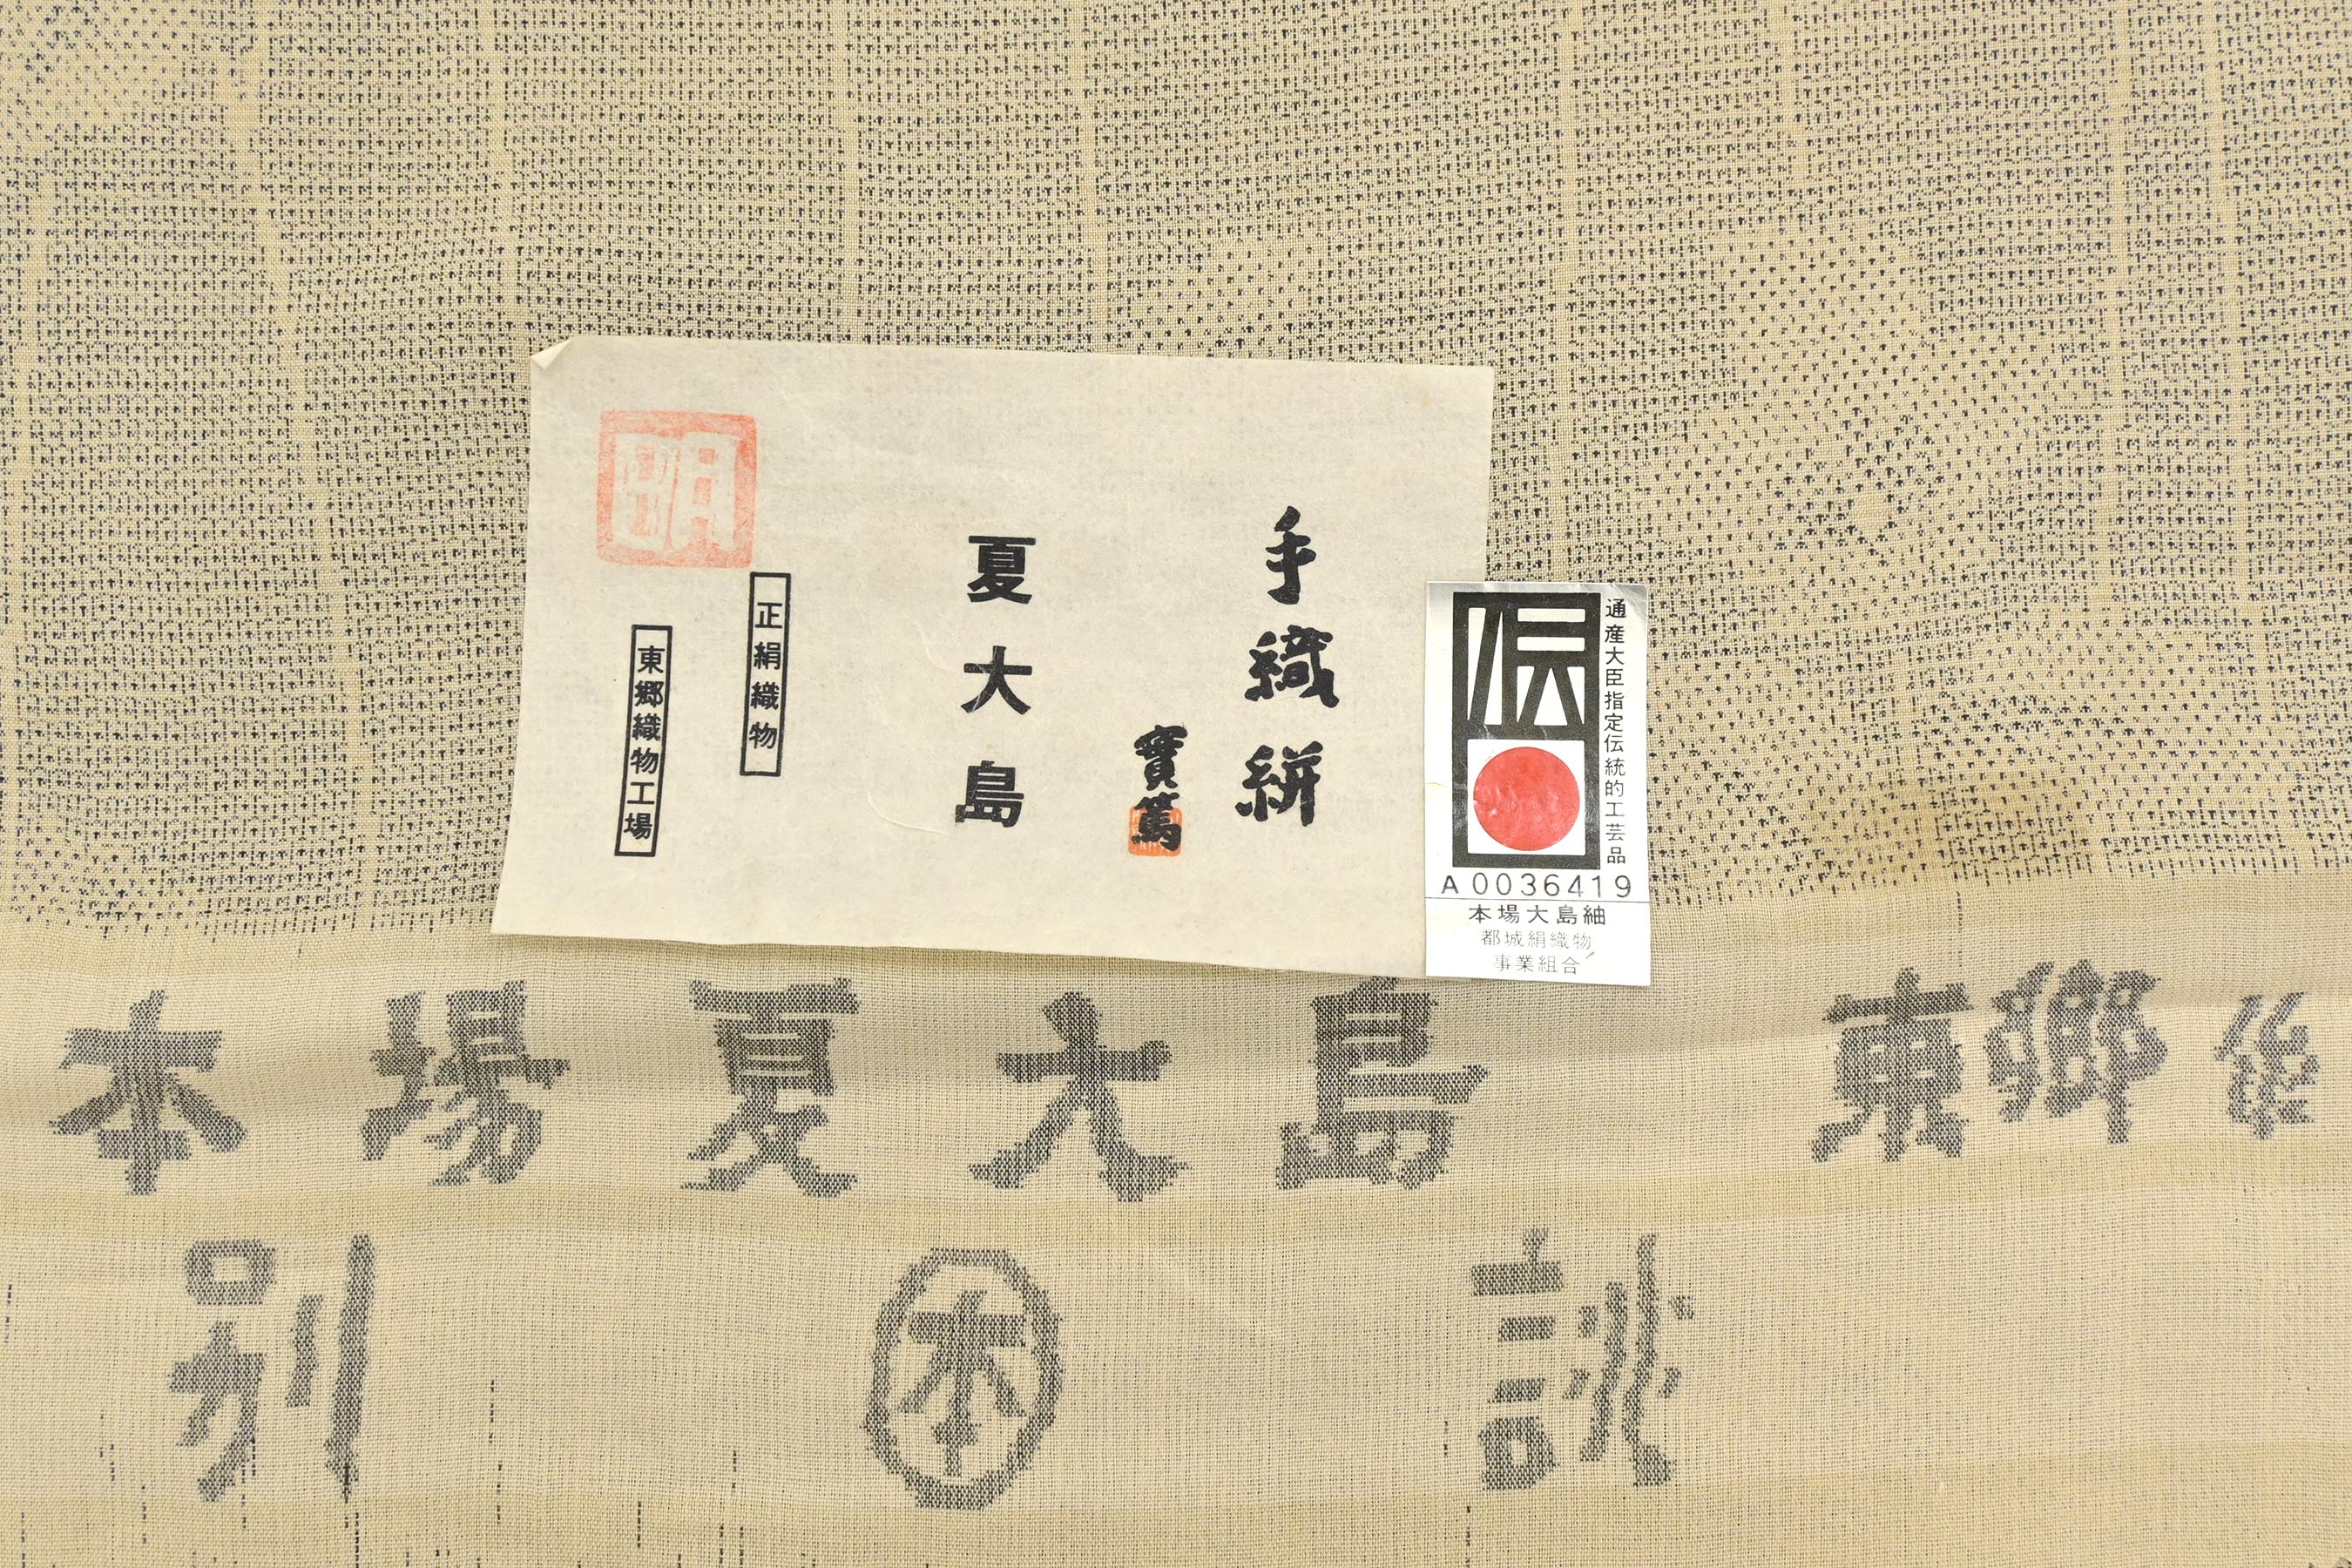 手織絣
實篤
夏大島
正絹織物
東郷織物工場
明
伝
通産大臣指定伝統的工芸品
A0036419
本場大島紬
都城絹織物
事業組合
本場夏大島 東郷
別 本 誂